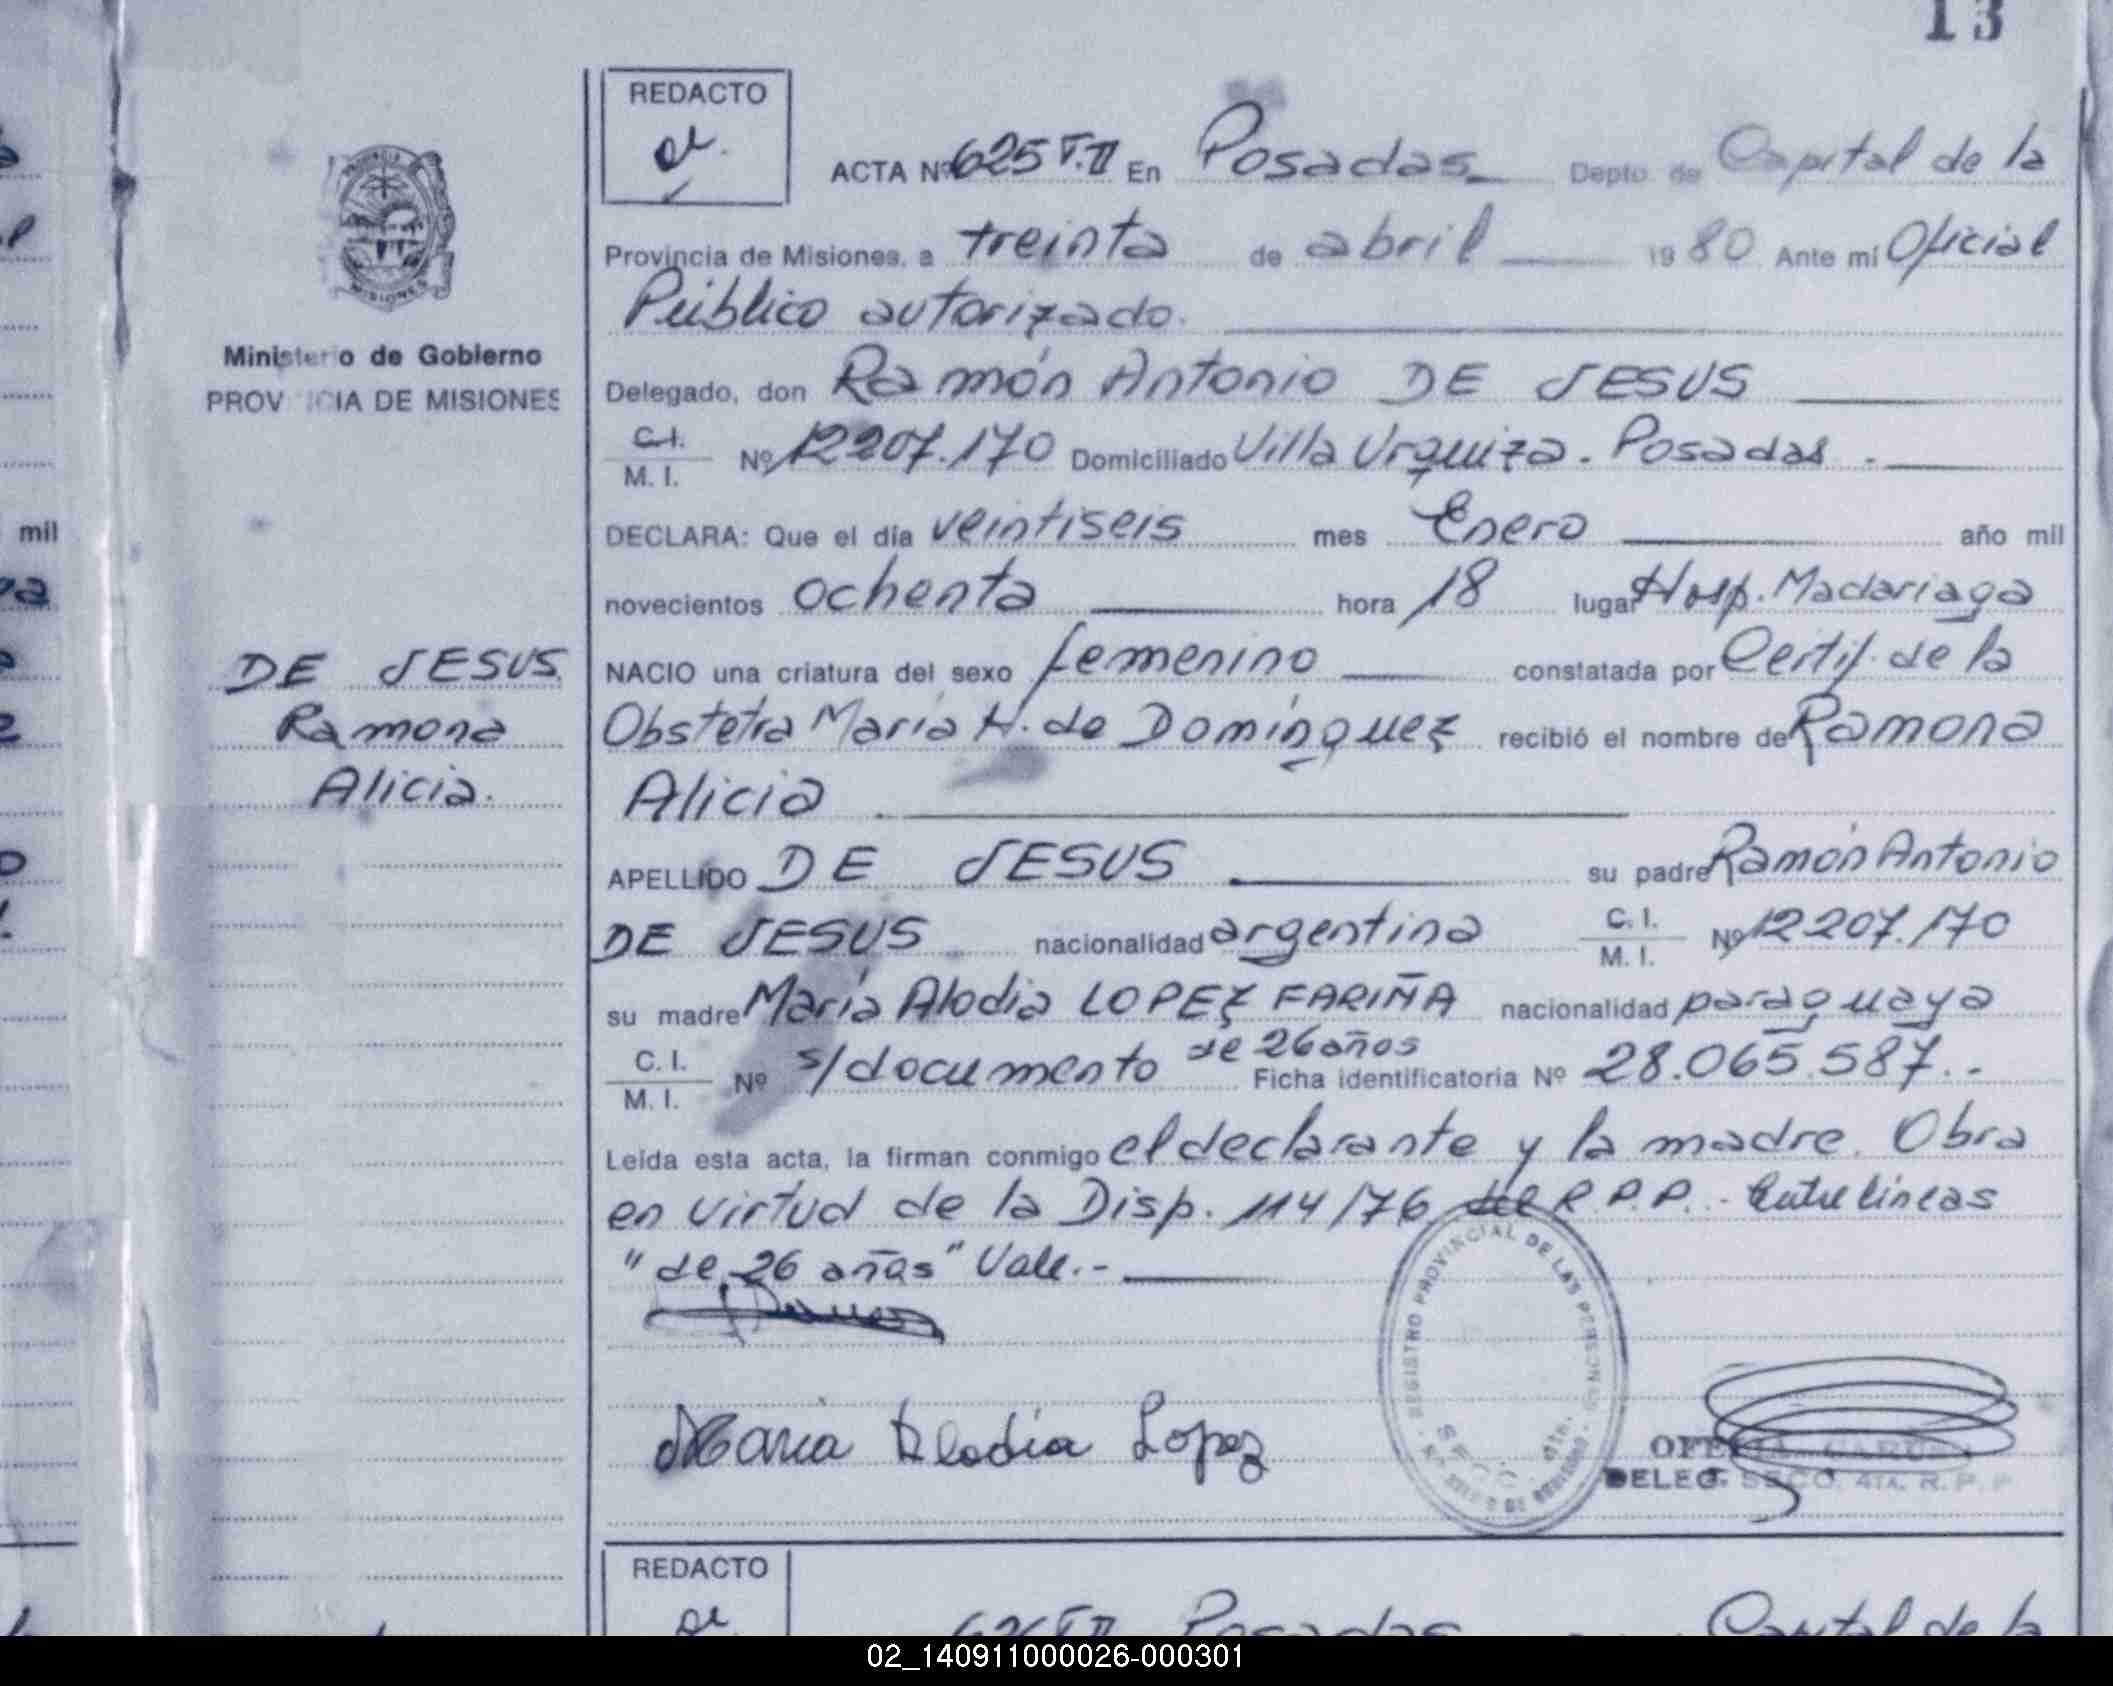 13
REDACTO
ACTA Nº 625 T.II En Posadas Depto. de Capital de la
Provincia de Misiones, a treinta de abril 1980 Ante mí Oficial
Público autorizado.
Ministerio de Gobierno
PROVINCIA DE MISIONES
Delegado, don Ramón Antonio DE JESUS
C.I.
M. I. Nº 12207.170 Domiciliado Villa Urquiza. Posadas.
DECLARA: Que el día veintiseis mes Enero año mil
novecientos ochenta hora 18 lugar Hosp. Madariaga
DE JESUS
Ramona
Alicia.
NACIO una criatura del sexo femenino constatada por Certif. de la
Obstetra María H. de Domínguez recibió el nombre de Ramona
Alicia
APELLIDO DE JESUS su padre Ramón Antonio
DE JESUS nacionalidad argentina C. I.
M. I. Nº 12207.170
su madre María Alodia LOPEZ FARIÑA nacionalidad paraguaya
C. I.
M. I. Nº s/documento de 26 años Ficha identificatoria Nº 28.065.587..
Leída esta acta, la firman conmigo el declarante y la madre. Obra
en virtud de la Disp. 114/76 del R.P.P.- Entre líneas
"de 26 años" Vale.-
Maria Alodia Lopez
REGISTRO PROVINCIAL DE LAS PERSONAS
SECC. 4ta.
DELEG. SECC. 4TA. R. P. P
REDACTO
626 T.II Posadas Capital de la
mil
02_140911000026-000301